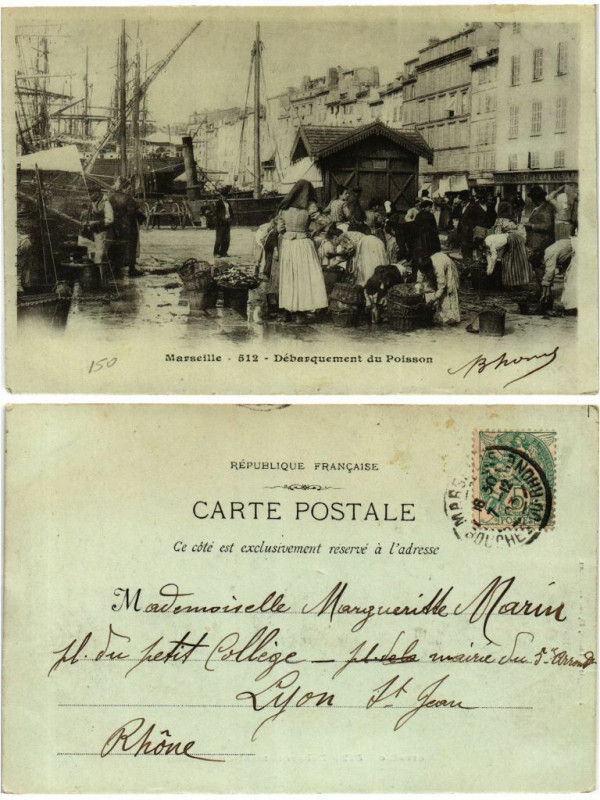 Marseille - 512 - Débarquement du Poisson
150
RÉPUBLIQUE FRANÇAISE
CARTE POSTALE
Ce côté est exclusivement réservé à l'adresse
Mademoiselle Margueritte Marin
pl. du petit Collège — pl. de la mairie du 5e Arrondt
Lyon St Jean
Rhône
5
POSTES